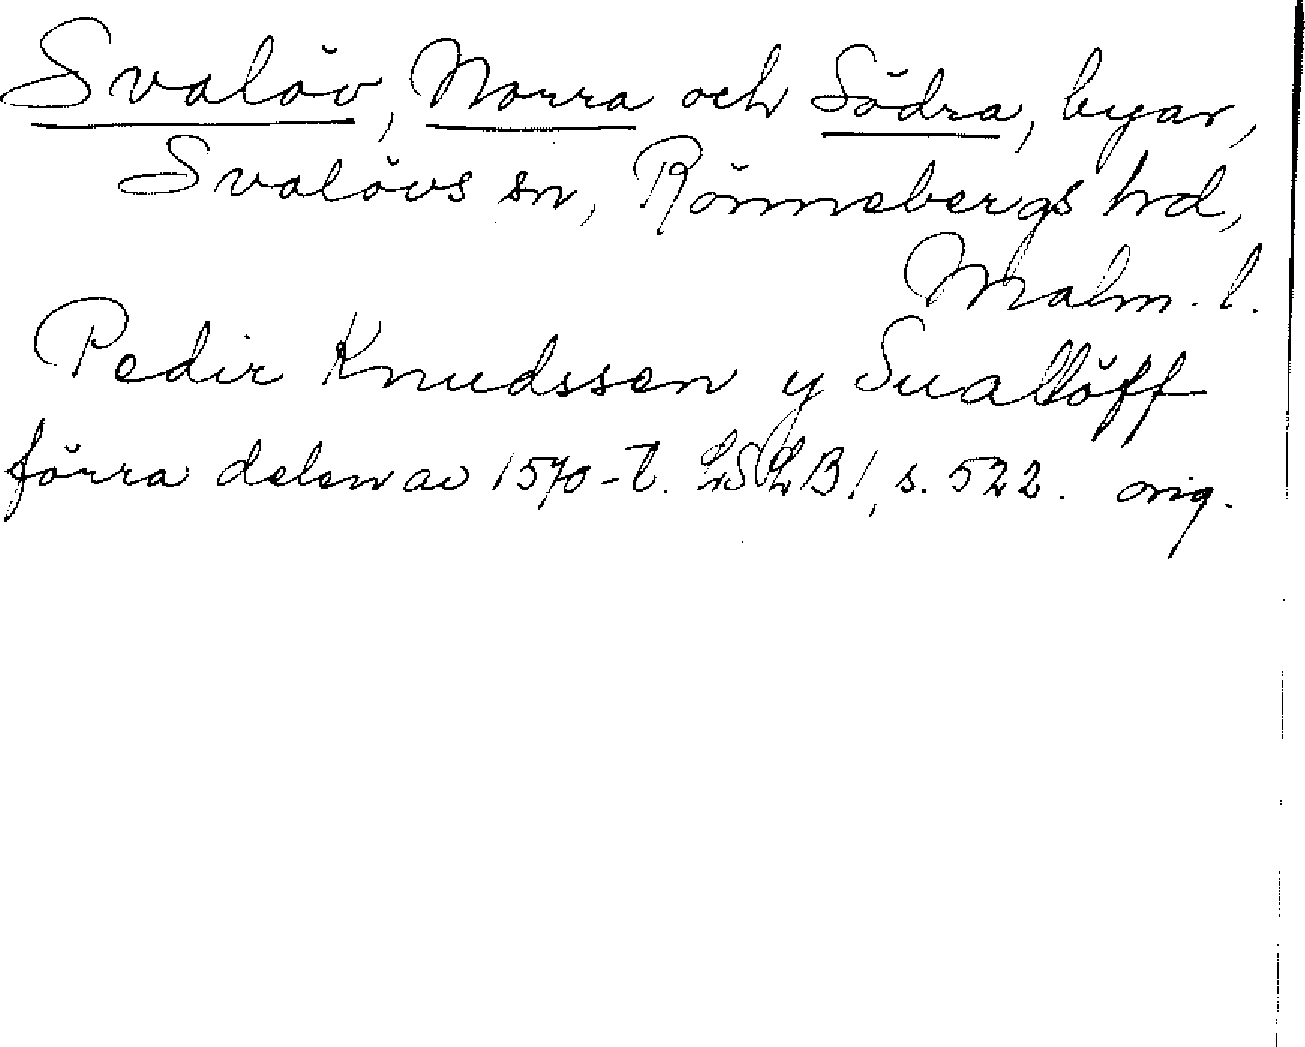 Svalöv, Norra och Södra, byar,
Svalövs sn, Rönnebergs hrd,
Malm. l.
Pedir Knudssen y Suallöff
förra delen av 1570-t. LSLB1, s. 522. orig.